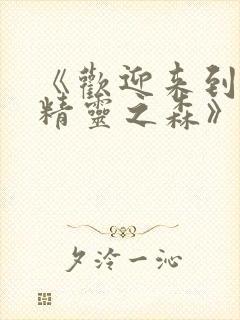 《歡迎来到
精靈之森》
夕泠一沁